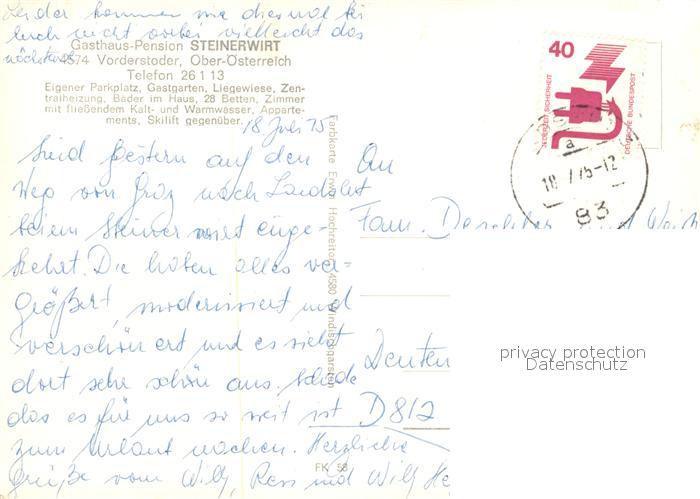 Leider kommen wir diesmal bei
Euch nicht vorbei vielleicht das
nächstemal
Gasthaus-Pension STEINERWIRT
4574 Vorderstoder, Ober-Österreich
Telefon 26 1 13
Eigener Parkplatz, Gastgarten, Liegewiese, Zen-
tralheizung, Bäder im Haus, 28 Betten, Zimmer
mit fließendem Kalt- und Warmwasser, Apparte-
ments, Skilift gegenüber.
18 Juli 75
Sind gestern auf den
Weg von Graz nach Landshut
beim Steinerwirt einge-
kehrt. Die haben alles ver-
größert, modernisiert und
verschönert und es sieht
dort sehr schön aus. Schade
das es für uns so weit ist
zum Urlaub machen. Herzliche
Grüße vom Willy, Resi und Willy
Farbkarte Erwin Hochreiter, 4580 Windischgarsten
FK 58
An
Fam.
D 812
40
JEDERZEIT SICHERHEIT
DEUTSCHE BUNDESPOST
a
18.7.75-12
83
privacy protection
Datenschutz